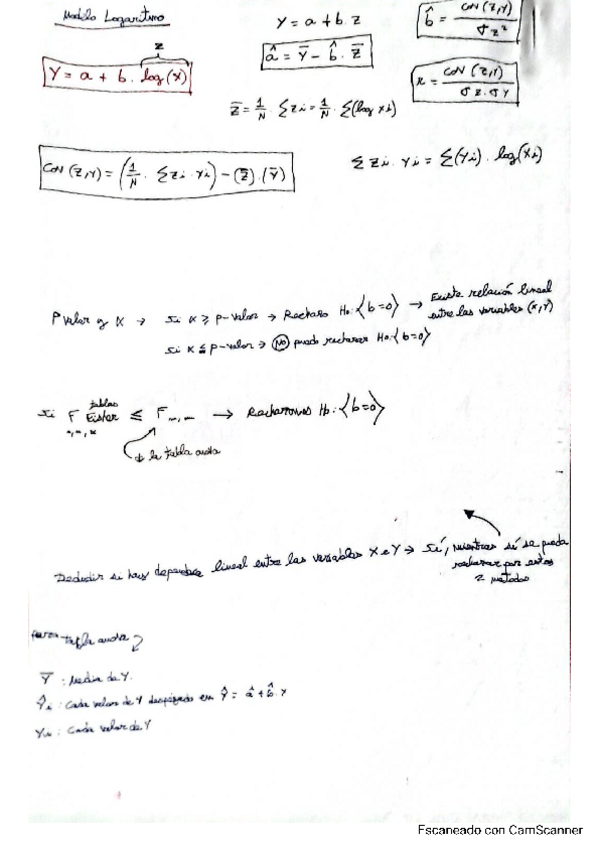 Modelo Logaritmo
Y = a + b . z
b̂ = cov (z,Y) / σz²
z
Y = a + b . log(x)
â = Ȳ - b̂ . z̄
r = cov (z,Y) / σz . σY
z̄ = 1/N . Σ zi = 1/N . Σ(log xi)
cov (z,Y) = (1/N . Σ zi . Yi) - (z̄) . (Ȳ)
Σ zi . Yi = Σ(Yi) . log(Xi)
P valor y α → si α ≥ p-valor → Rechazo Ho: {b=0} → Existe relación lineal
entre las variables (x,Y)
si α ≤ p-valor → No puedo rechazar Ho: {b=0}
tablas
si F ≤ F → Rechazamos Ho: {b=0}
la tabla anova
Deducir si hay dependencia lineal entre las variables X e Y → Sí, mientras sí se pueda
rechazar por estos
2 metodos
tabla anova
Ȳ : Media de Y.
Ŷi : Cada valor de Y despejado en Ŷ = â + b̂ . x
Yi : Cada valor de Y
Escaneado con CamScanner